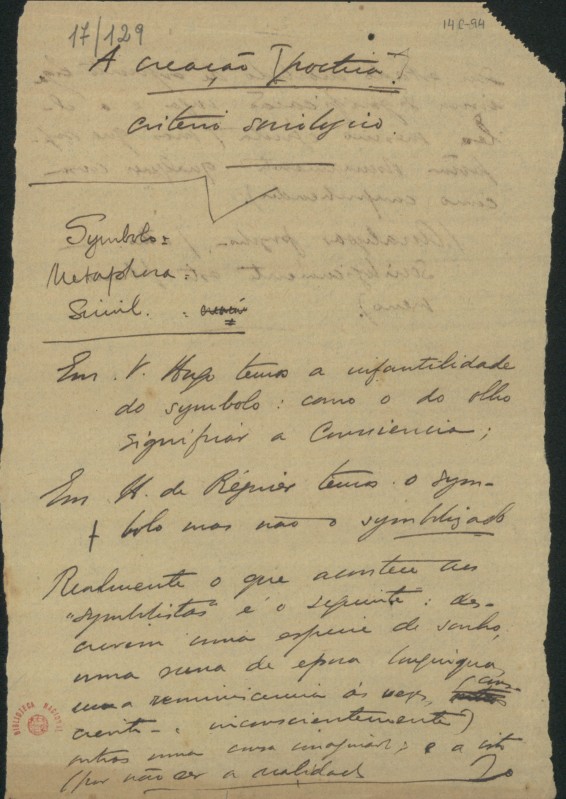 17/129
14C-94
A creação Poetica.
criterio sociologico.
Symbolo:
Metaphora:
Simil. :
Em V. Hugo temos a infantilidade
do symbolo: como o do olho
significar a Consciencia;
Em H. de Régnier temos o sym-
bolo mas não o symbolizado
Realmente o que acontece aos
"symbolistas" é o seguinte: des-
crevem uma especie de sonho,
uma scena de epoca longinqua,
uma reminiscencia ás vezes, (cons-
ciente - inconscientemente)
outros uma cousa imaginar; e a isto
(por não ser a realidade
BIBLIOTECA NACIONAL